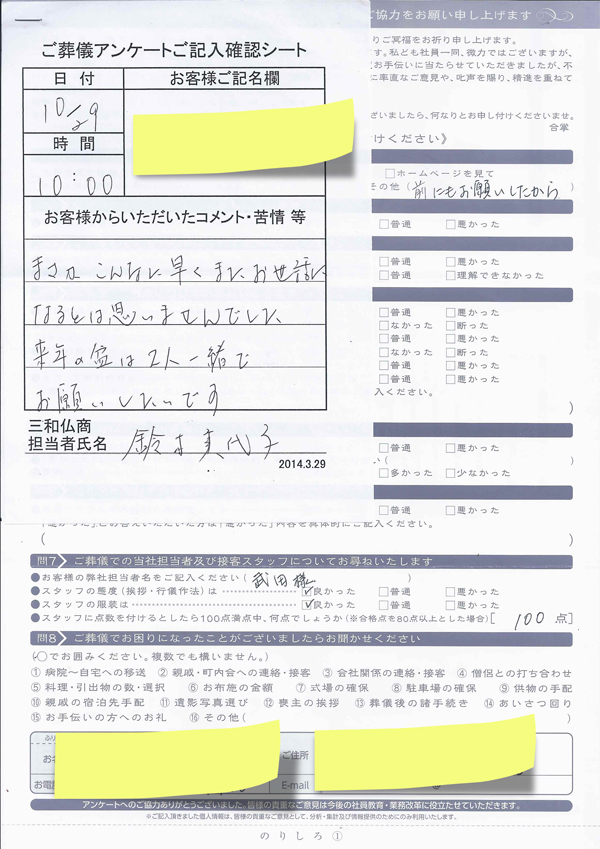 ご協力をお願い申し上げます
ご葬儀アンケートご記入確認シート
日付
お客様ご記名欄
10/29
時間
10:00
お客様からいただいたコメント・苦情 等
まさか こんなに早く また お世話に
なるとは思いませんでした
来年の盆は2人一緒で
お願いしたいです
三和仏商
担当者氏名 鈴木美代子
2014.3.29
りご冥福をお祈り申し上げます。
す。私ども社員一同、微力ではございますが、
お手伝いに当たらせていただきましたが、不
に率直なご意見や、叱声を賜り、精進を重ねて
ざいましたら、何なりとお申し付けくださいませ。
合掌
付けください》
□ホームページを見て
その他(前にもお願いしたから
□普通 □悪かった
□普通 □悪かった
□普通 □理解できなかった
□普通 □悪かった
□なかった □断った
□普通 □悪かった
□なかった □断った
□普通 □悪かった
□普通 □悪かった
入ください。
)
□普通 □悪かった
)
□多かった □少なかった
□普通 □悪かった
「悪かった」とお答えいただいた方は「悪かった」内容を具体的にご記入ください。
( )
問7 ご葬儀での当社担当者及び接客スタッフについてお尋ねいたします
●お客様の弊社担当者名をご記入ください(武田様 )
●スタッフの態度(挨拶・行儀作法)は ☑良かった □普通 □悪かった
●スタッフの服装は ☑良かった □普通 □悪かった
●スタッフに点数を付けるとしたら100点満点中、何点でしょうか(※合格点を80点以上とした場合)[ 100 点]
問8 ご葬儀でお困りになったことがございましたらお聞かせください
(○でお囲みください。複数でも構いません。)
①病院〜自宅への移送 ②親戚・町内会への連絡・接客 ③会社関係の連絡・接客 ④僧侶との打ち合わせ
⑤料理・引出物の数・選択 ⑥お布施の金額 ⑦式場の確保 ⑧駐車場の確保 ⑨供物の手配
⑩親戚の宿泊先手配 ⑪遺影写真選び ⑫喪主の挨拶 ⑬葬儀後の諸手続き ⑭あいさつ回り
⑮お手伝いの方へのお礼 ⑯その他( )
ふり
お名
ご住所
お電話
E-mail
アンケートへのご協力ありがとうございました。皆様の貴重なご意見は今後の社員教育・業務改革に役立たせていただきます。
※ご記入頂きました個人情報は、皆様の貴重なご意見として、分析・集計及び情報提供のためにのみ利用いたします。
のりしろ①